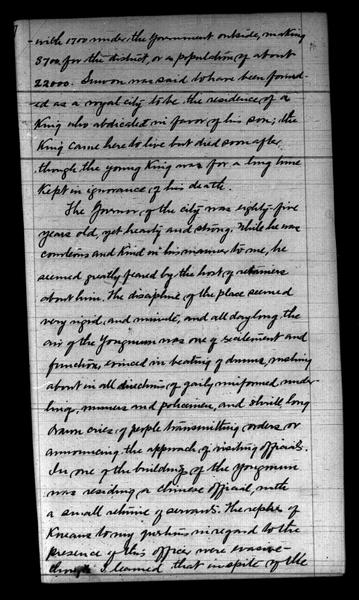 with 1700 under the Government outside, making
3700 for the district, or a population of about
22000. Suwon was said to have been found-
ed as a royal city to be the residence of a
King who abdicated in favor of his son; the
King came here to live but died soon after
though the young King was for a long time
Kept in ignorance of his death.
The Governor of the city was eighty-five
years old, yet hearty and strong. While he was
courteous and Kind in his manner to me, he
seemed greatly feared by the host of retainers
about him. The discipline of the place seemed
very rigid, and minute, and all day long the
air of the Yongmun was one of excitement and
function, evinced in beating of drums, rushing
about in all directions of gaily uniformed under-
lings, runners and policemen, and shrill long
drawn cries of people transmitting orders, or
announcing the approach of visiting officials.
In one of the buildings of the Yongmun
was residing a Chinese official, with
a small retinue of servants. The replies of
Koreans to my questions in regard to the
presence of this officer were evasive-
though I learned that in spite of the